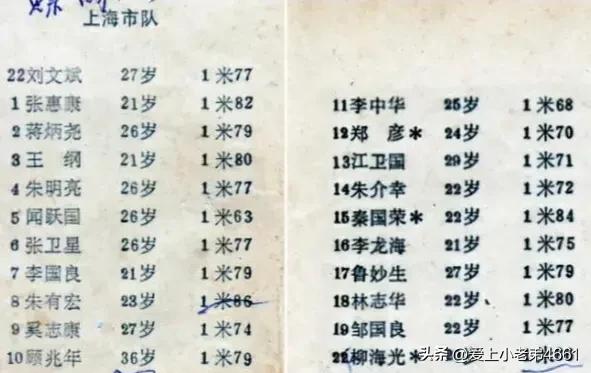 上海市队
22刘文斌 27岁 1米77
1张惠康 21岁 1米82
2蒋炳尧 26岁 1米79
3王 纲 21岁 1米80
4朱明亮 26岁 1米77
5闻跃国 26岁 1米63
6张卫星 26岁 1米77
7李国良 21岁 1米79
8朱有宏 23岁 1米86
9奚志康 27岁 1米74
10顾兆年 36岁 1米79
11李中华 25岁 1米68
12郑 彦* 24岁 1米70
13江卫国 29岁 1米71
14朱介幸 22岁 1米72
15秦国荣* 22岁 1米84
16李龙海 21岁 1米75
17鲁妙生 27岁 1米79
18林志华 22岁 1米80
19邹国良 22岁 1米77
柳海光*
头条 @爱上小老弟4661